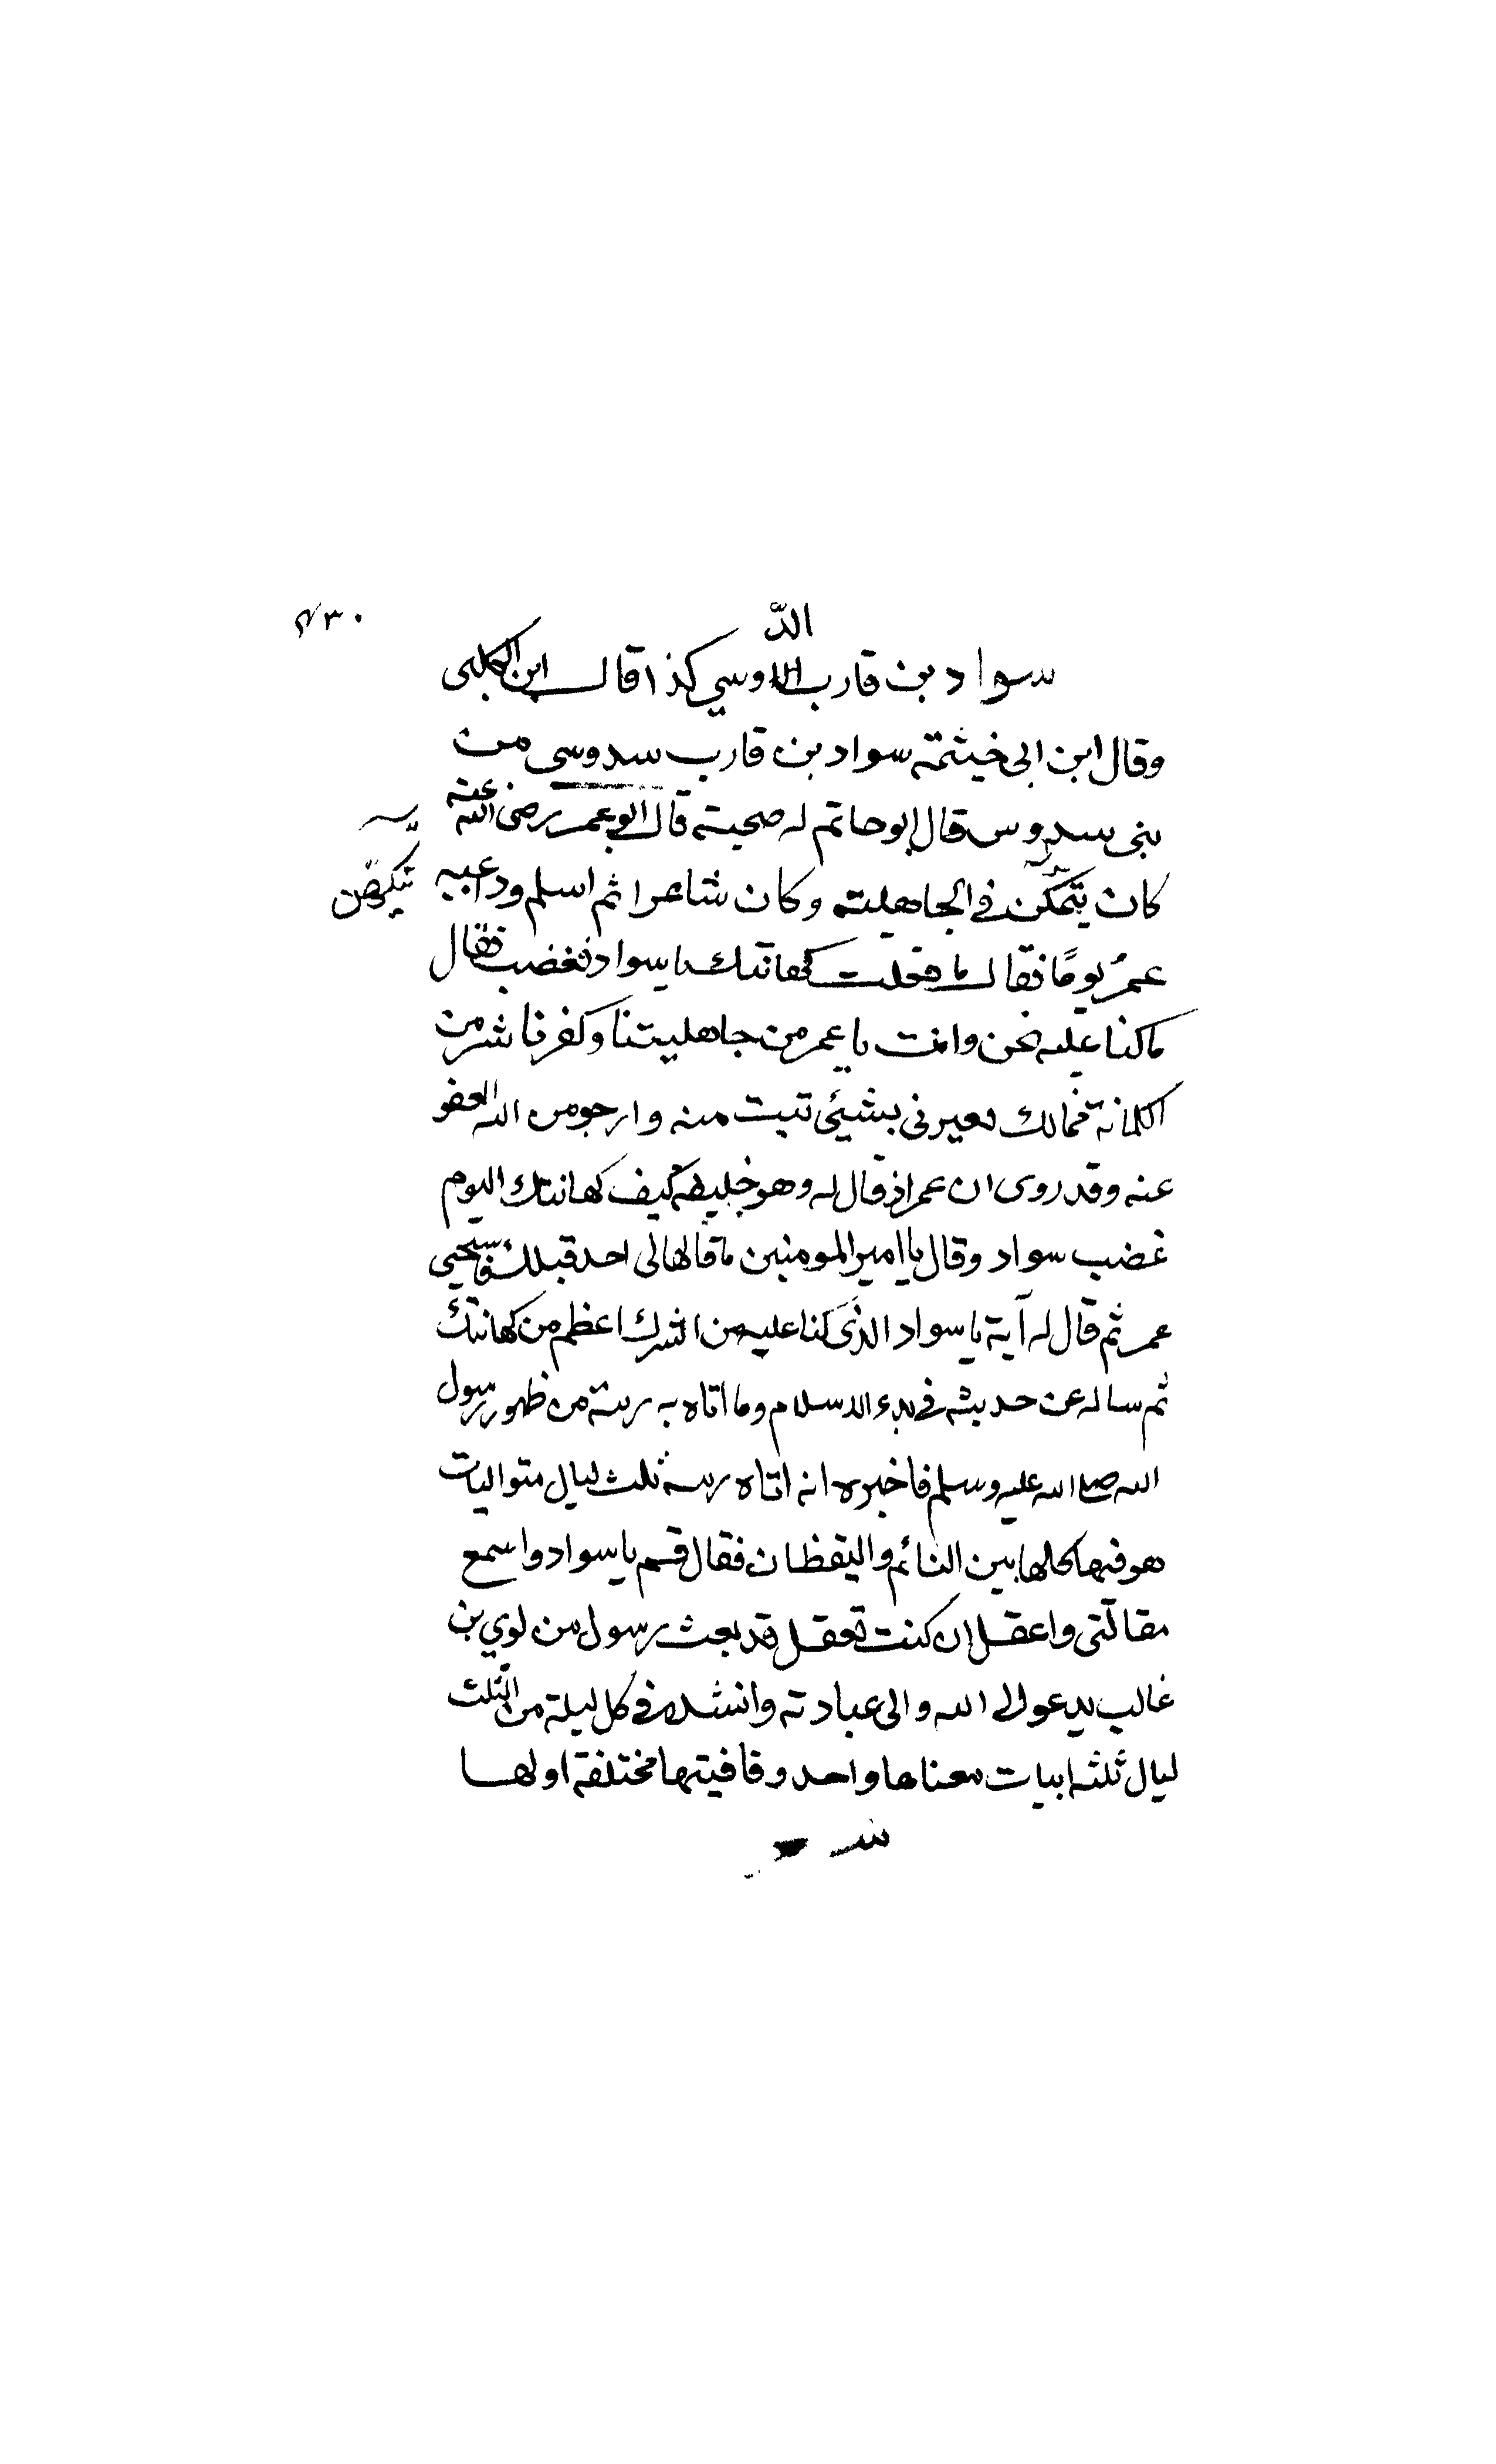 ٣٠
الد
سواد بن قارب الدوسي كذا قال ابن الكلبى
وقال ابن ابى خيثمة سواد بن قارب سدوسى من
بنى سدوس قال ابو حاتم له صحبته قال ابو عمر رضى الله عنه
كان يتمكن فى الجاهلية وكان شاعرا ثم اسلم وداعبه
يتكهن
عمرُ يومًا فقال ما فعلت كهانتك يا سواد فغضب فقال
ما كنا عليه نحن وانت يا عمر من جاهليتنا وكفرنا شر من
الكهانة فمالك تعيرنى بشيئ تبت منه وارجو من الله العفو
عنه وقد روى ان عمر اذ قال له وهو خليفة كيف كهانتك اليوم
غضب سواد وقال يا امير المومنين ما قالها لى احد قبلك فاستحيى
عمر ثم قال له آية يا سواد الذى كنا عليه من الشرك اعظم من كهانتك
ثم ساله عن حديثه فى بدء الاسلام وما اتاه به رئية من ظهور رسول
الله صلع الله عليه وسلم فاخبره انه اتاه رئيه ثلث ليال متواليات
هو فيها كلها بين النائم واليقظان فقال قم يا سواد واسمع
مقالتى واعقل ان كنت تعقل قد بعث رسول من لوي بن
غالب يدعو الى الله والى عبادته وانشده فى كل ليلة من الثلث
ليال ثلثه ابيات معناها واحد وقافيتها مختلفة اولها